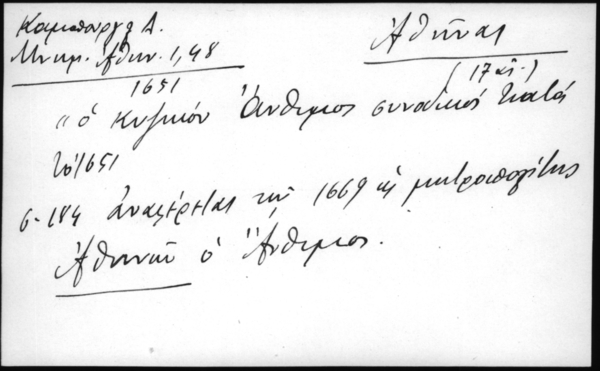 Καμπούρογλ Δ.
Μνημ. Ἀθην. 1,48
Ἀθῆναι
(17 αἰ.)
1651
"ὁ Κυζικοῦ Ἄνθιμος συνοδικός κατά
τό 1651
σ. 184 ἀναφέρεται τῷ 1669 ὡς μητροπολίτης
Ἀθηνῶν ὁ Ἄνθιμος.